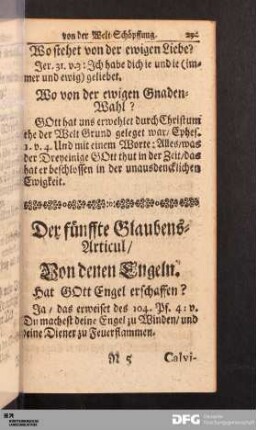 von der Welt-Schöpffung.
Wo stehet von der ewigen Liebe?
Jer. 31. v. 3: Ich habe dich ie und ie (im-
mer und ewig) geliebet.
Wo von der ewigen Gnaden-
Wahl?
GOtt hat uns erwehlet durch Christum
ehe der Welt Grund geleget war/ Ephes.
1. v. 4. Und mit einem Worte: Alles/ was
der Dreyeinige GOtt thut in der Zeit/ das
hat er beschlossen in der unausdencklichen
Ewigkeit.
Der fünffte Glaubens-
Articul/
Von denen Engeln.
Hat GOtt Engel erschaffen?
Ja/ das erweiset des 104. Ps. 4: v.
Du machest deine Engel zu Winden/ und
deine Diener zu Feuerflammen.
N 5 Calvi-
DFG